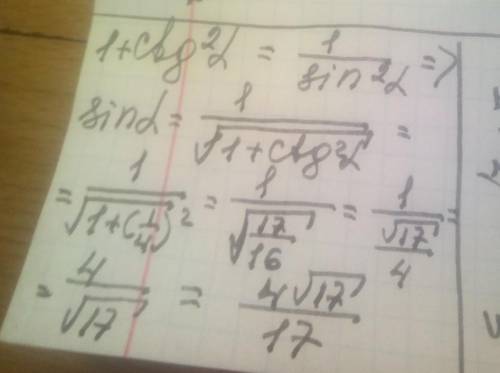 1+ctg²α = 1/sin²α =>
sinα = 1/√(1+ctg²α) =
= 1/√(1+(1/4)²) = 1/√(17/16) = 1/(√17/4) =
= 4/√17 = 4√17/17